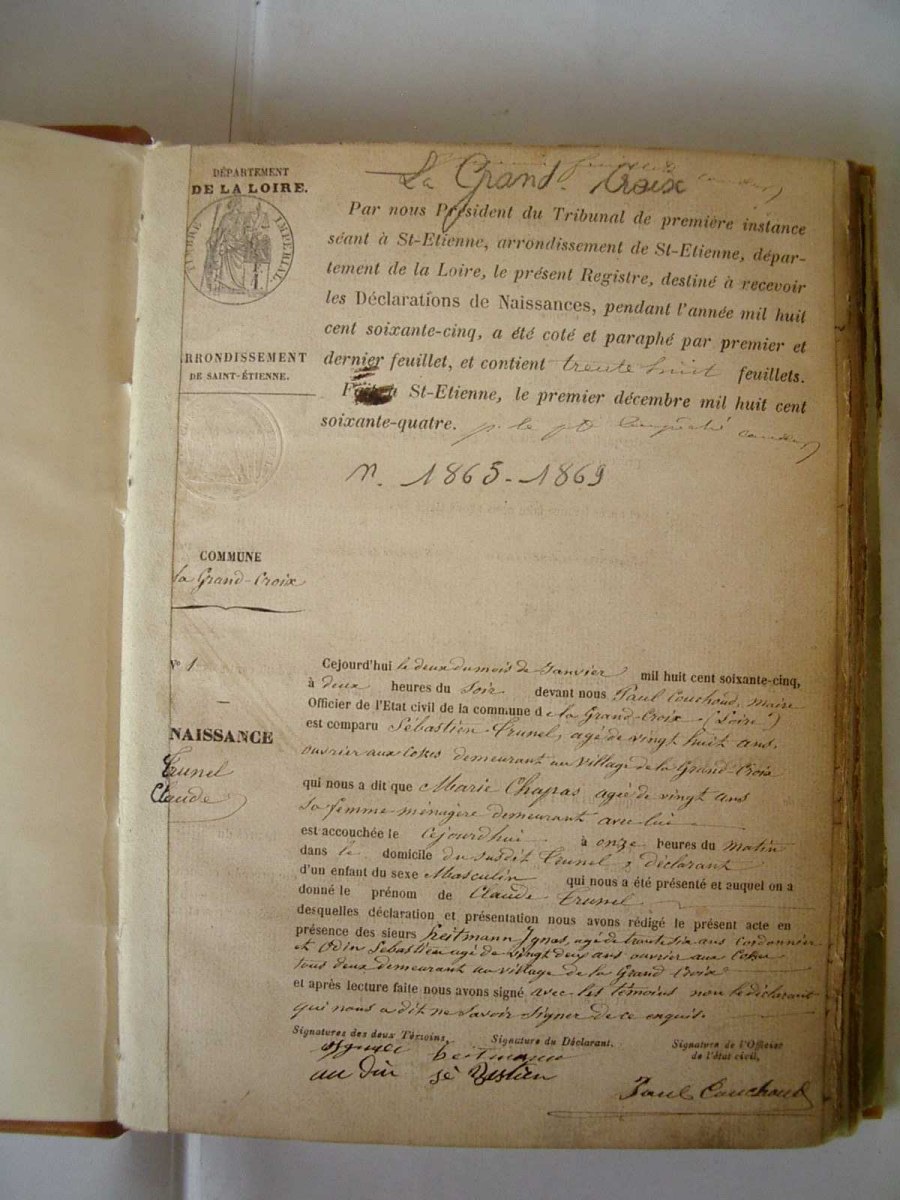 DÉPARTEMENT
DE LA LOIRE.
TIMBRE IMPÉRIAL
La Grand-Croix
Par nous Président du Tribunal de première instance
séant à St-Etienne, arrondissement de St-Etienne, dépar-
tement de la Loire, le présent Registre, destiné à recevoir
les Déclarations de Naissances, pendant l'année mil huit
cent soixante-cinq, a été coté et paraphé par premier et
dernier feuillet, et contient trente huit feuillets.
Fait à St-Etienne, le premier décembre mil huit cent
soixante-quatre. p. le pt empêché
RRONDISSEMENT
DE SAINT-ÉTIENNE.
n. 1865-1869
COMMUNE
la Grand-Croix
No 1
NAISSANCE
Trunel
Claude
Cejourd'hui le deux du mois de Janvier mil huit cent soixante-cinq,
à deux heures du Soir devant nous Paul Couchoud, maire
Officier de l'Etat civil de la commune d e la Grand-Croix (Loire)
est comparu Sébastien Trunel, agé de vingt huit ans,
ouvrier aux cokes demeurant au Village de la Grand-Croix
qui nous a dit que Marie Chapas agée de vingt ans
Sa femme ménagère demeurant avec lui
est accouchée le cejourdhui à onze heures du matin
dans le domicile du susdit Trunel, déclarant
d'un enfant du sexe Masculin qui nous a été présenté et auquel on a
donné le prénom de Claude Trunel
desquelles déclaration et présentation nous avons rédigé le présent acte en
présence des sieurs heitmann Ignas, agé de trente six ans cordonnier
et Odin Sebastien agé de vingt deux ans ouvrier aux Cokes
tous deux demeurant au village de la Grand Croix
et après lecture faite nous avons signé avec les témoins non le déclarant
qui nous a dit ne savoir signer de ce enquis.
Signatures des deux Témoins, Signature du Déclarant. Signature de l'Officier
de l'état civil,
heitmann
au din sé bastien
Paul Couchoud